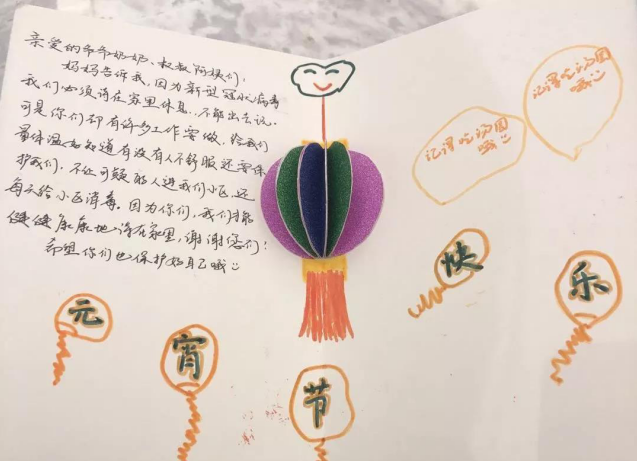 亲爱的爷爷奶奶、叔叔阿姨们，
妈妈告诉我，因为新型冠状病毒
我们必须待在家里休息，不能出去玩。
可是你们却有许多工作要做，给我们
量体温，知道有没有人不舒服还要保
护我们，不让可疑的人进我们小区，还
每天给小区消毒。因为你们，我们才能
健健康康地待在家里，谢谢您们！
希望你们也保护好自己哦
记得吃汤圆
哦
记得吃汤圆
哦
元
宵
节
快
乐